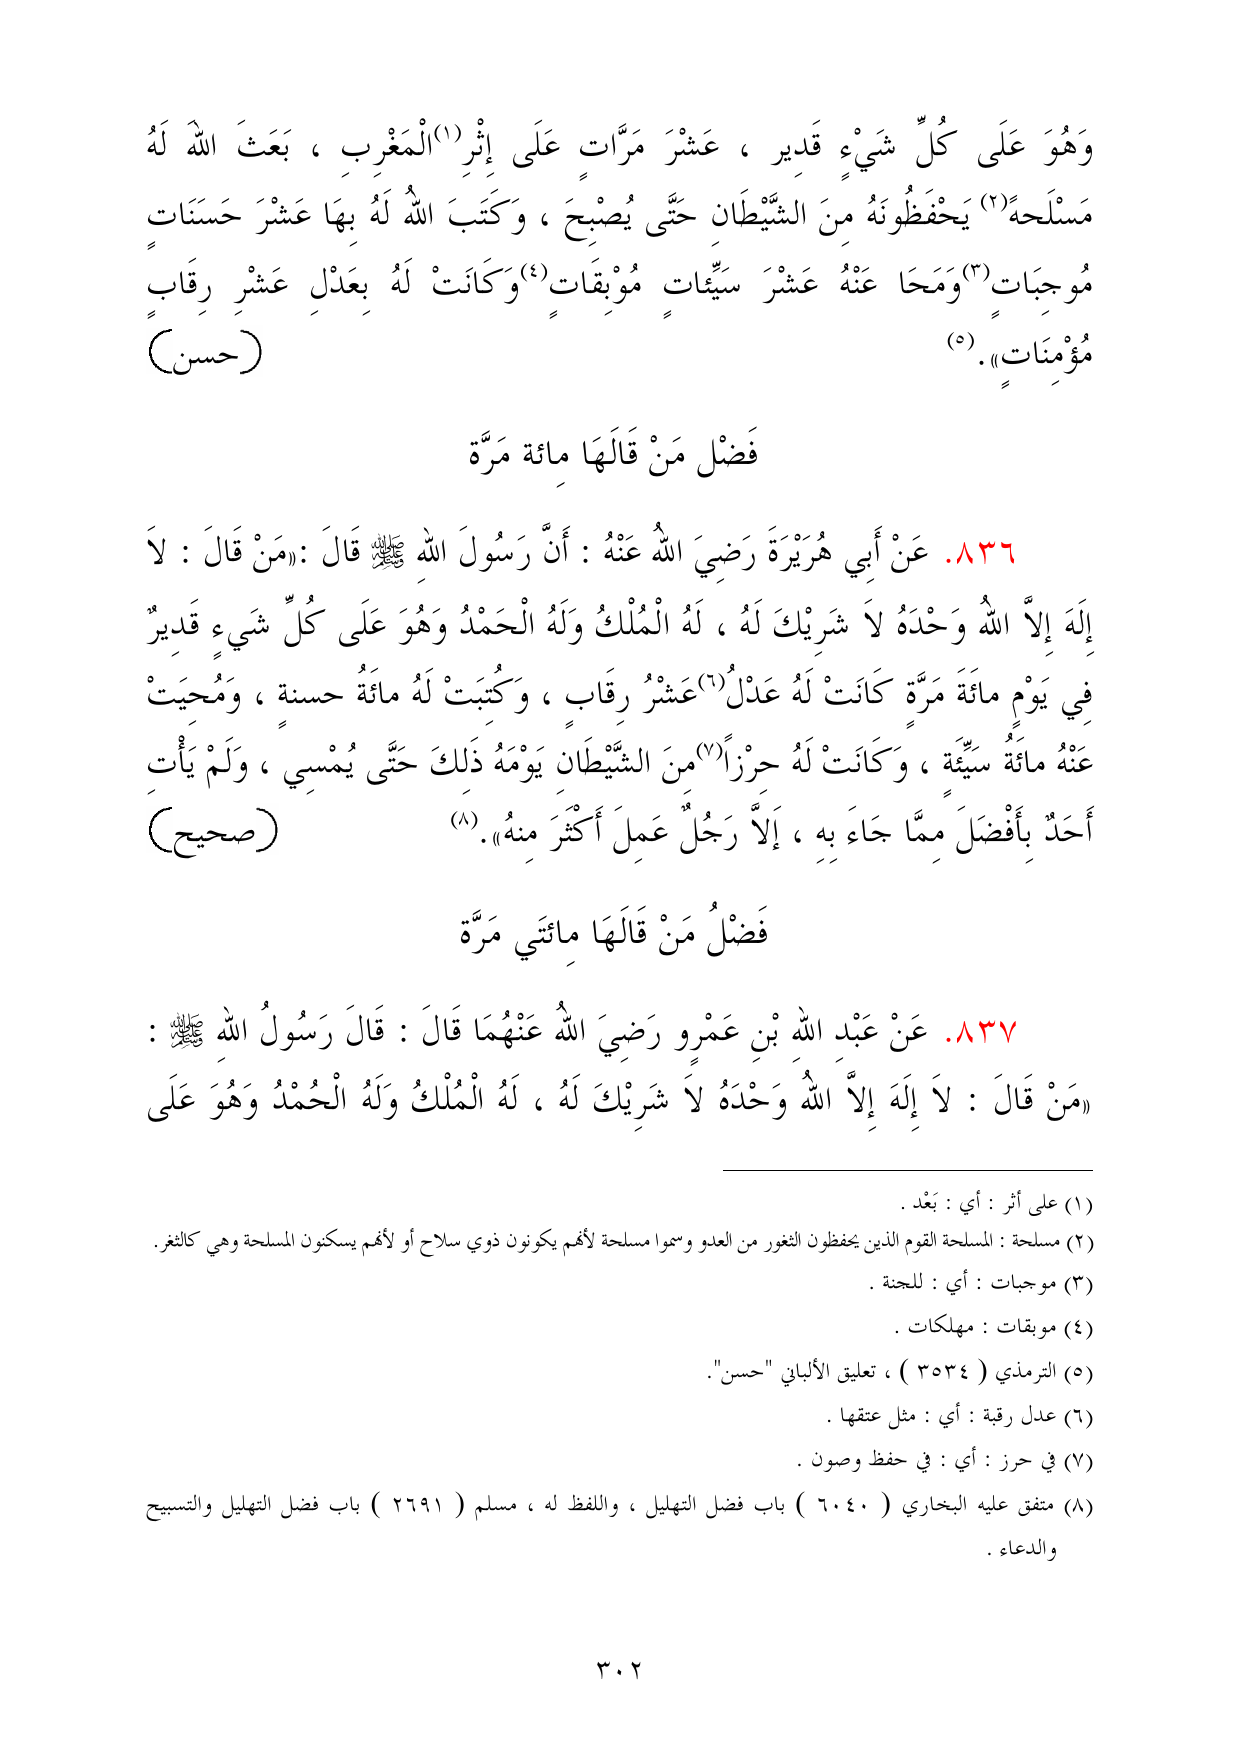 وَهُوَ عَلَى كُلِّ شَيْءٍ قَدِير ، عَشْرَ مَرَّاتٍ عَلَى إِثْرِ(١)الْمَغْرِبِ ، بَعَثَ اللهَ لَهُ
مَسْلَحةً(٢) يَحْفَظُونَهُ مِنَ الشَّيْطَانِ حَتَّى يُصْبِحَ ، وَكَتَبَ اللهُ لَهُ بِهَا عَشْرَ حَسَنَاتٍ
مُوجِبَاتٍ(٣)وَمَحَا عَنْهُ عَشْرَ سَيِّئاتٍ مُوْبِقَاتٍ(٤)وَكَانَتْ لَهُ بِعَدْلِ عَشْرِ رِقَابٍ
مُؤْمِنَاتٍ».(٥) (حسن)
فَضْل مَنْ قَالَهَا مِائة مَرَّة
٨٣٦. عَنْ أَبِي هُرَيْرَةَ رَضِيَ اللهُ عَنْهُ : أَنَّ رَسُولَ اللهِ ﷺ قَالَ :«مَنْ قَالَ : لاَ
إِلَهَ إِلاَّ اللهُ وَحْدَهُ لاَ شَرِيْكَ لَهُ ، لَهُ الْمُلْكُ وَلَهُ الْحَمْدُ وَهُوَ عَلَى كُلِّ شَيءٍ قَدِيرٌ
فِي يَوْمٍ مائَةَ مَرَّةٍ كَانَتْ لَهُ عَدْلُ(٦)عَشْرُ رِقَابٍ ، وَكُتِبَتْ لَهُ مائَةُ حسنةٍ ، وَمُحِيَتْ
عَنْهُ مائَةُ سَيِّئَةٍ ، وَكَانَتْ لَهُ حِرْزاً(٧)مِنَ الشَّيْطَانِ يَوْمَهُ ذَلِكَ حَتَّى يُمْسِي ، وَلَمْ يَأْتِ
أَحَدٌ بِأَفْضَلَ مِمَّا جَاءَ بِهِ ، إَلاَّ رَجُلٌ عَمِلَ أَكْثَرَ مِنهُ».(٨) (صحيح)
فَضْلُ مَنْ قَالَهَا مِائتَي مَرَّة
٨٣٧. عَنْ عَبْدِ اللهِ بْنِ عَمْرٍو رَضِيَ اللهُ عَنْهُمَا قَالَ : قَالَ رَسُولُ اللهِ ﷺ :
«مَنْ قَالَ : لاَ إِلَهَ إِلاَّ اللهُ وَحْدَهُ لاَ شَرِيْكَ لَهُ ، لَهُ الْمُلْكُ وَلَهُ الْحُمْدُ وَهُوَ عَلَى
(١) على أثر : أي : بَعْد .
(٢) مسلحة : المسلحة القوم الذين يحفظون الثغور من العدو وسموا مسلحة لأنهم يكونون ذوي سلاح أو لأنهم يسكنون المسلحة وهي كالثغر.
(٣) موجبات : أي : للجنة .
(٤) موبقات : مهلكات .
(٥) الترمذي ( ٣٥٣٤ ) ، تعليق الألباني "حسن".
(٦) عدل رقبة : أي : مثل عتقها .
(٧) في حرز : أي : في حفظ وصون .
(٨) متفق عليه البخاري ( ٦٠٤٠ ) باب فضل التهليل ، واللفظ له ، مسلم ( ٢٦٩١ ) باب فضل التهليل والتسبيح
والدعاء .
٣٠٢